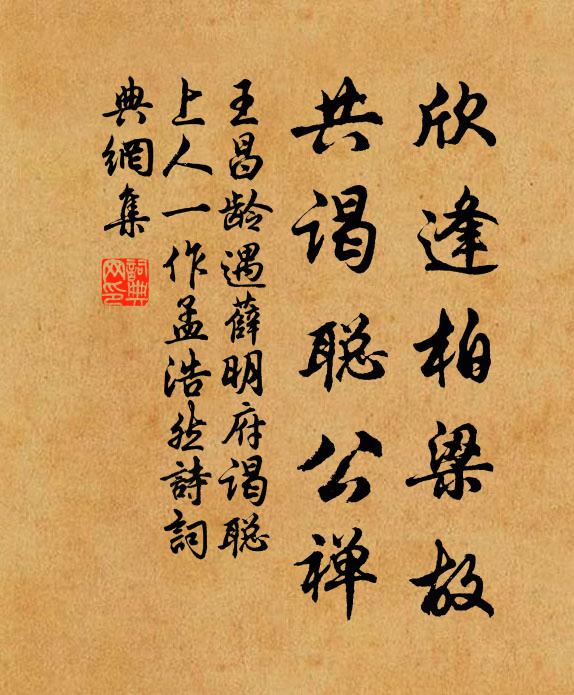 欣逢柏梁故
共谒聪公禅
王昌龄遇薛明府谒聪
上人一作孟浩然詩詞
典網集
詞典网印